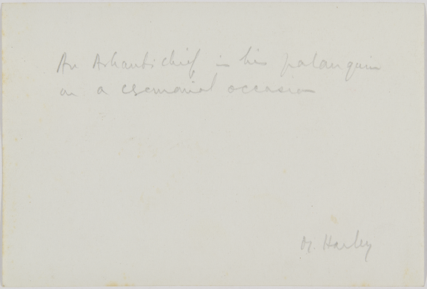 An Ashanti chief in his palanquin
on a ceremonial occasion
M. Harley